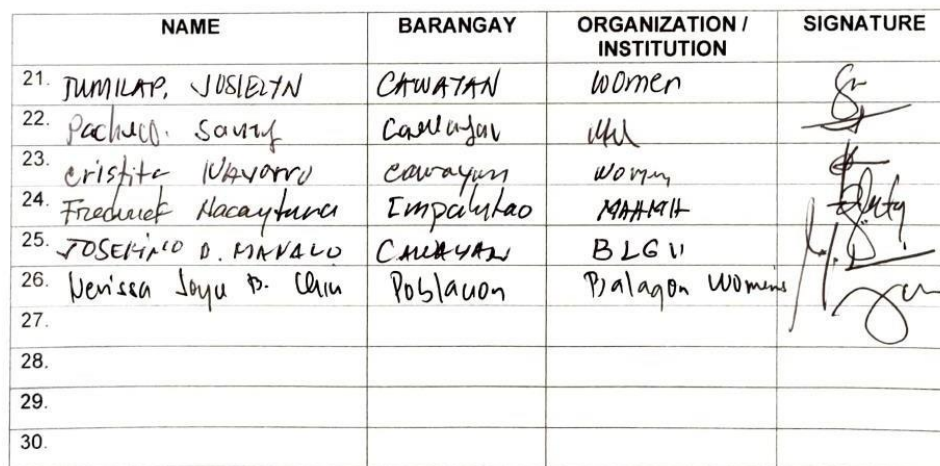 NAME BARANGAY ORGANIZATION / INSTITUTION SIGNATURE
21. TUMILAP, JOSIELYN CAWAYAN Women
22. Pacheco.
23. Cristita Navarro Cawayan Women
24. Impalutao
25. JOSEFINO D. MANALO CAWAYAN BLGU
26. Nerissa Joyu B. Poblacion Balagon Womens
27.
28.
29.
30.